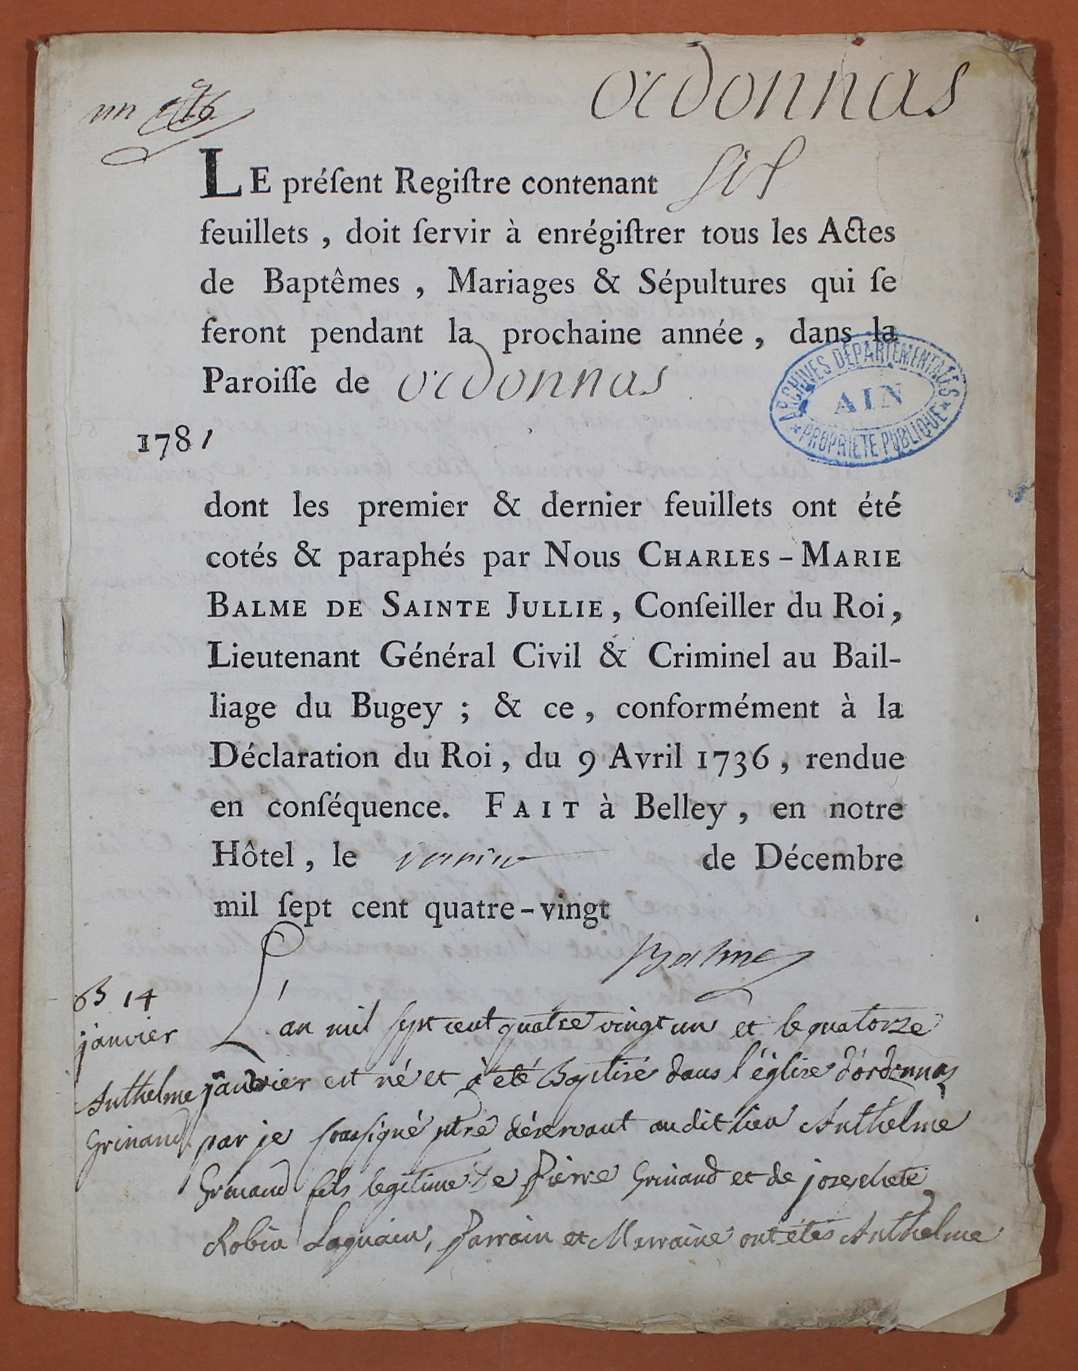 ordonnas
un
LE préſent Regiſtre contenant six
feuillets , doit ſervir à enrégiſtrer tous les Actes
de Baptêmes , Mariages & Sépultures qui ſe
feront pendant la prochaine année , dans la
Paroiſſe de ordonnas
1781
ARCHIVES DÉPARTEMENTALES
AIN
PROPRIÉTÉ PUBLIQUE
dont les premier & dernier feuillets ont été
cotés & paraphés par Nous CHARLES-MARIE
BALME DE SAINTE JULLIE, Conſeiller du Roi,
Lieutenant Général Civil & Criminel au Bail-
liage du Bugey ; & ce , conformément à la
Déclaration du Roi, du 9 Avril 1736 , rendue
en conſéquence. FAIT à Belley , en notre
Hôtel , le de Décembre
mil ſept cent quatre-vingt
Balme
B 14
janvier
Anthelme
Grinand
L'an mil sept cent quatre vingt un et le quatorze
janvier est né et à été Baptisé dans l'église d'ordonnas
par je soussigné ptre déservant audit lieu Anthelme
Grinand fils legitime de Pierre Grinand et de
Robin Parrain et Marraine ont étés Anthelme